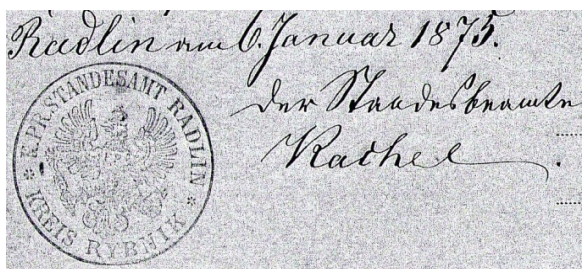 Radlin am 6. Januar 1875.
Der Standesbeamte
Kachel.
K. PR. STANDESAMT RADLIN
* KREIS RYBNIK *